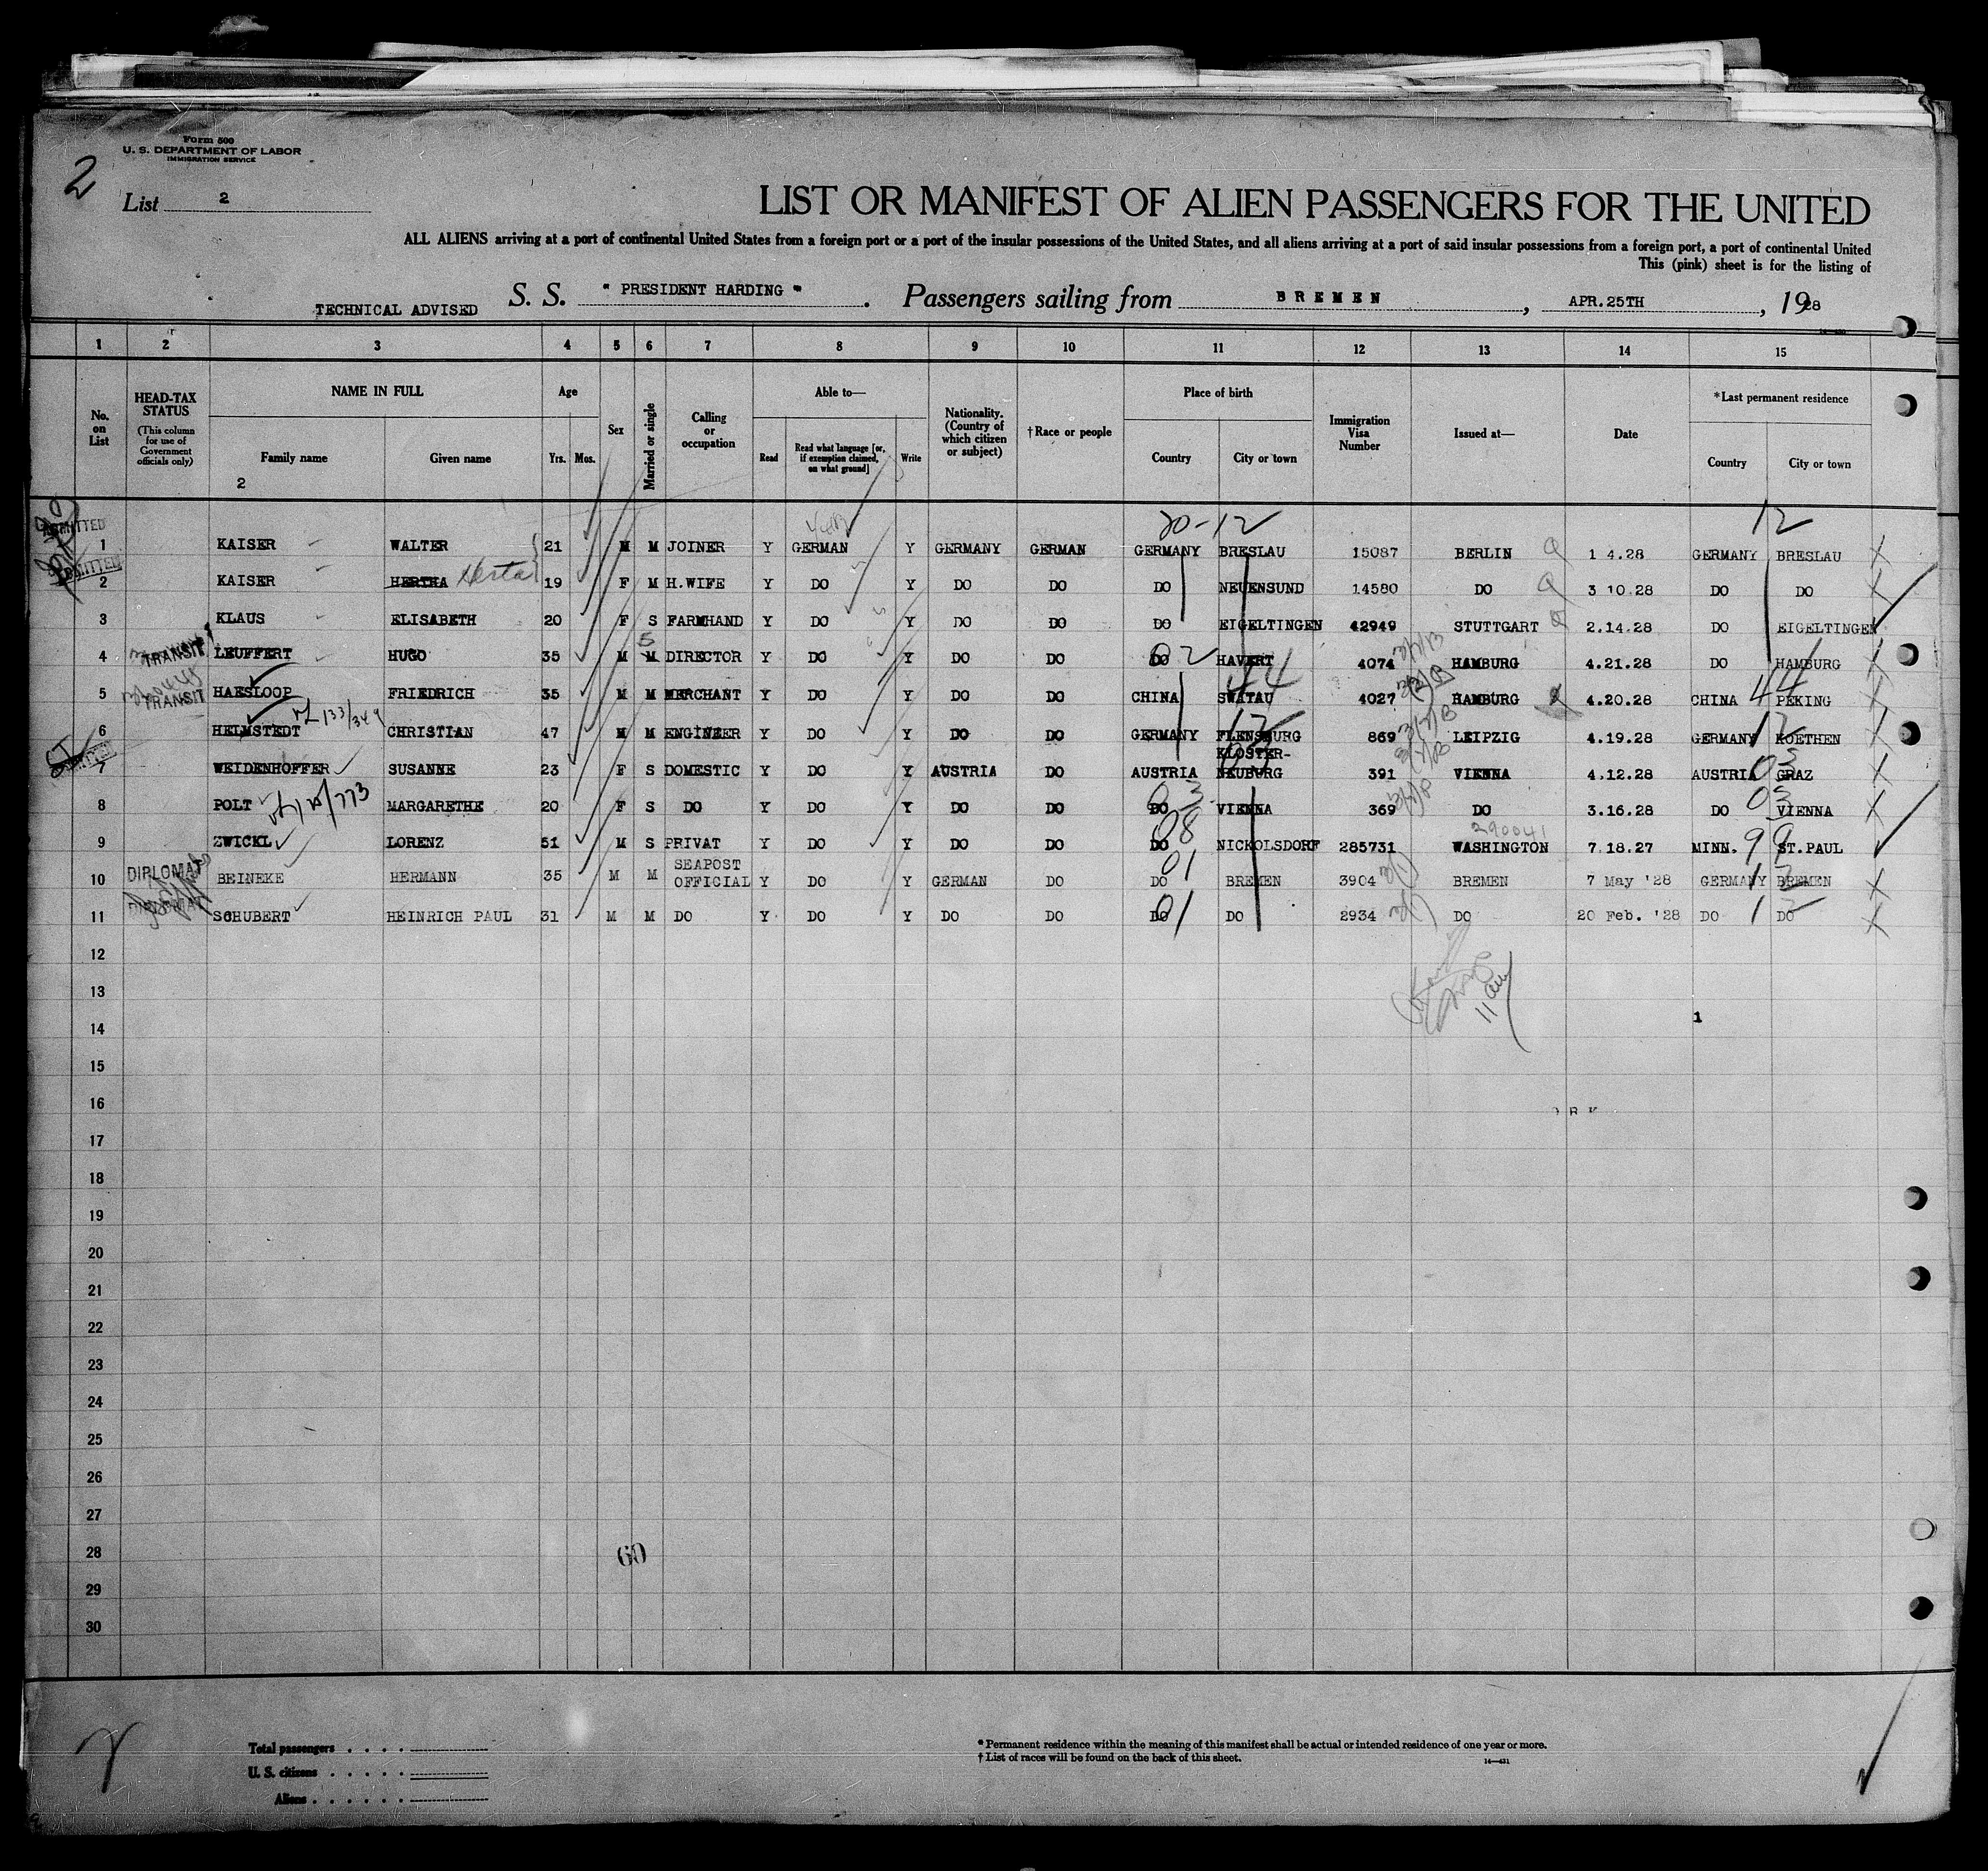 Form 500
U. S. DEPARTMENT OF LABOR
IMMIGRATION SERVICE
2
List 2
LIST OR MANIFEST OF ALIEN PASSENGERS FOR THE UNITED
ALL ALIENS arriving at a port of continental United States from a foreign port or a port of the insular possessions of the United States, and all aliens arriving at a port of said insular possessions from a foreign port, a port of continental United
This (pink) sheet is for the listing of
TECHNICAL ADVISED S. S. " PRESIDENT HARDING " . Passengers sailing from BREMEN , APR.25TH , 1928
1 2 3 4 5 6 7 8 9 10 11 12 13 14 15
No. on List
HEAD-TAX STATUS (This column for use of Government officials only)
NAME IN FULL
Family name
Given name
2
Age
Yrs. Mos.
Sex
Married or single
Calling or occupation
Able to—
Read
Read what language [or, if exemption claimed, on what ground]
Write
Nationality. (Country of which citizen or subject)
†Race or people
Place of birth
Country
City or town
Immigration Visa Number
Issued at—
Date
*Last permanent residence
Country
City or town
20-12 12
ADMITTED
1 KAISER WALTER 21 M M JOINER Y GERMAN Y GERMANY GERMAN GERMANY BRESLAU 15087 BERLIN 1 4.28 GERMANY BRESLAU X
2 KAISER HERTHA Herta 19 F M H.WIFE Y DO Y DO DO DO NEUENSUND 14580 DO 3 10.28 DO DO X
3 KLAUS ELISABETH 20 F S FARMHAND Y DO Y DO DO DO EIGELTINGEN 42949 STUTTGART 2.14.28 DO EIGELTINGEN
4 TRANSIT LEUFFERT HUGO 35 M M S DIRECTOR Y DO Y DO DO DO 02 HAVERT 4074 HAMBURG 4.21.28 DO HAMBURG X
5 TRANSIT HAESLOOP FRIEDRICH 35 M M MERCHANT Y DO Y DO DO CHINA 44 SWATAU 4027 HAMBURG 4.20.28 CHINA 44 PEKING X
6 HELMSTEDT 133/349 CHRISTIAN 47 M M ENGINEER Y DO Y DO DO GERMANY 12 FLENSBURG 869 LEIPZIG 4.19.28 GERMANY 12 KOETHEN X
7 WEIDENHOFFER SUSANNE 23 F S DOMESTIC Y DO Y AUSTRIA DO AUSTRIA KLOSTER-NEUBURG 03 391 VIENNA 4.12.28 AUSTRIA 03 GRAZ X
8 POLT MARGARETHE 20 F S DO Y DO Y DO DO DO 03 VIENNA 369 DO 3.16.28 DO 03 VIENNA X
9 ZWICKL LORENZ 51 M S PRIVAT Y DO Y DO DO DO 08 NICKOLSDORF 285731 290041 WASHINGTON 7.18.27 MINN. 99 ST.PAUL
10 DIPLOMAT BEINEKE HERMANN 35 M M SEAPOST OFFICIAL Y DO Y GERMAN DO DO 01 BREMEN 3904 BREMEN 7 May '28 GERMANY 12 BREMEN X
11 DIPLOMAT SCHUBERT HEINRICH PAUL 31 M M DO Y DO Y DO DO DO 01 DO 2934 DO 20 Feb. '28 DO 12 DO X
12
13
11 am
14 1
15
16
17
18
19
20
21
22
23
24
25
26
27
28 60
29
30
Total passengers
U. S. citizens
Aliens
* Permanent residence within the meaning of this manifest shall be actual or intended residence of one year or more.
† List of races will be found on the back of this sheet.
14—431